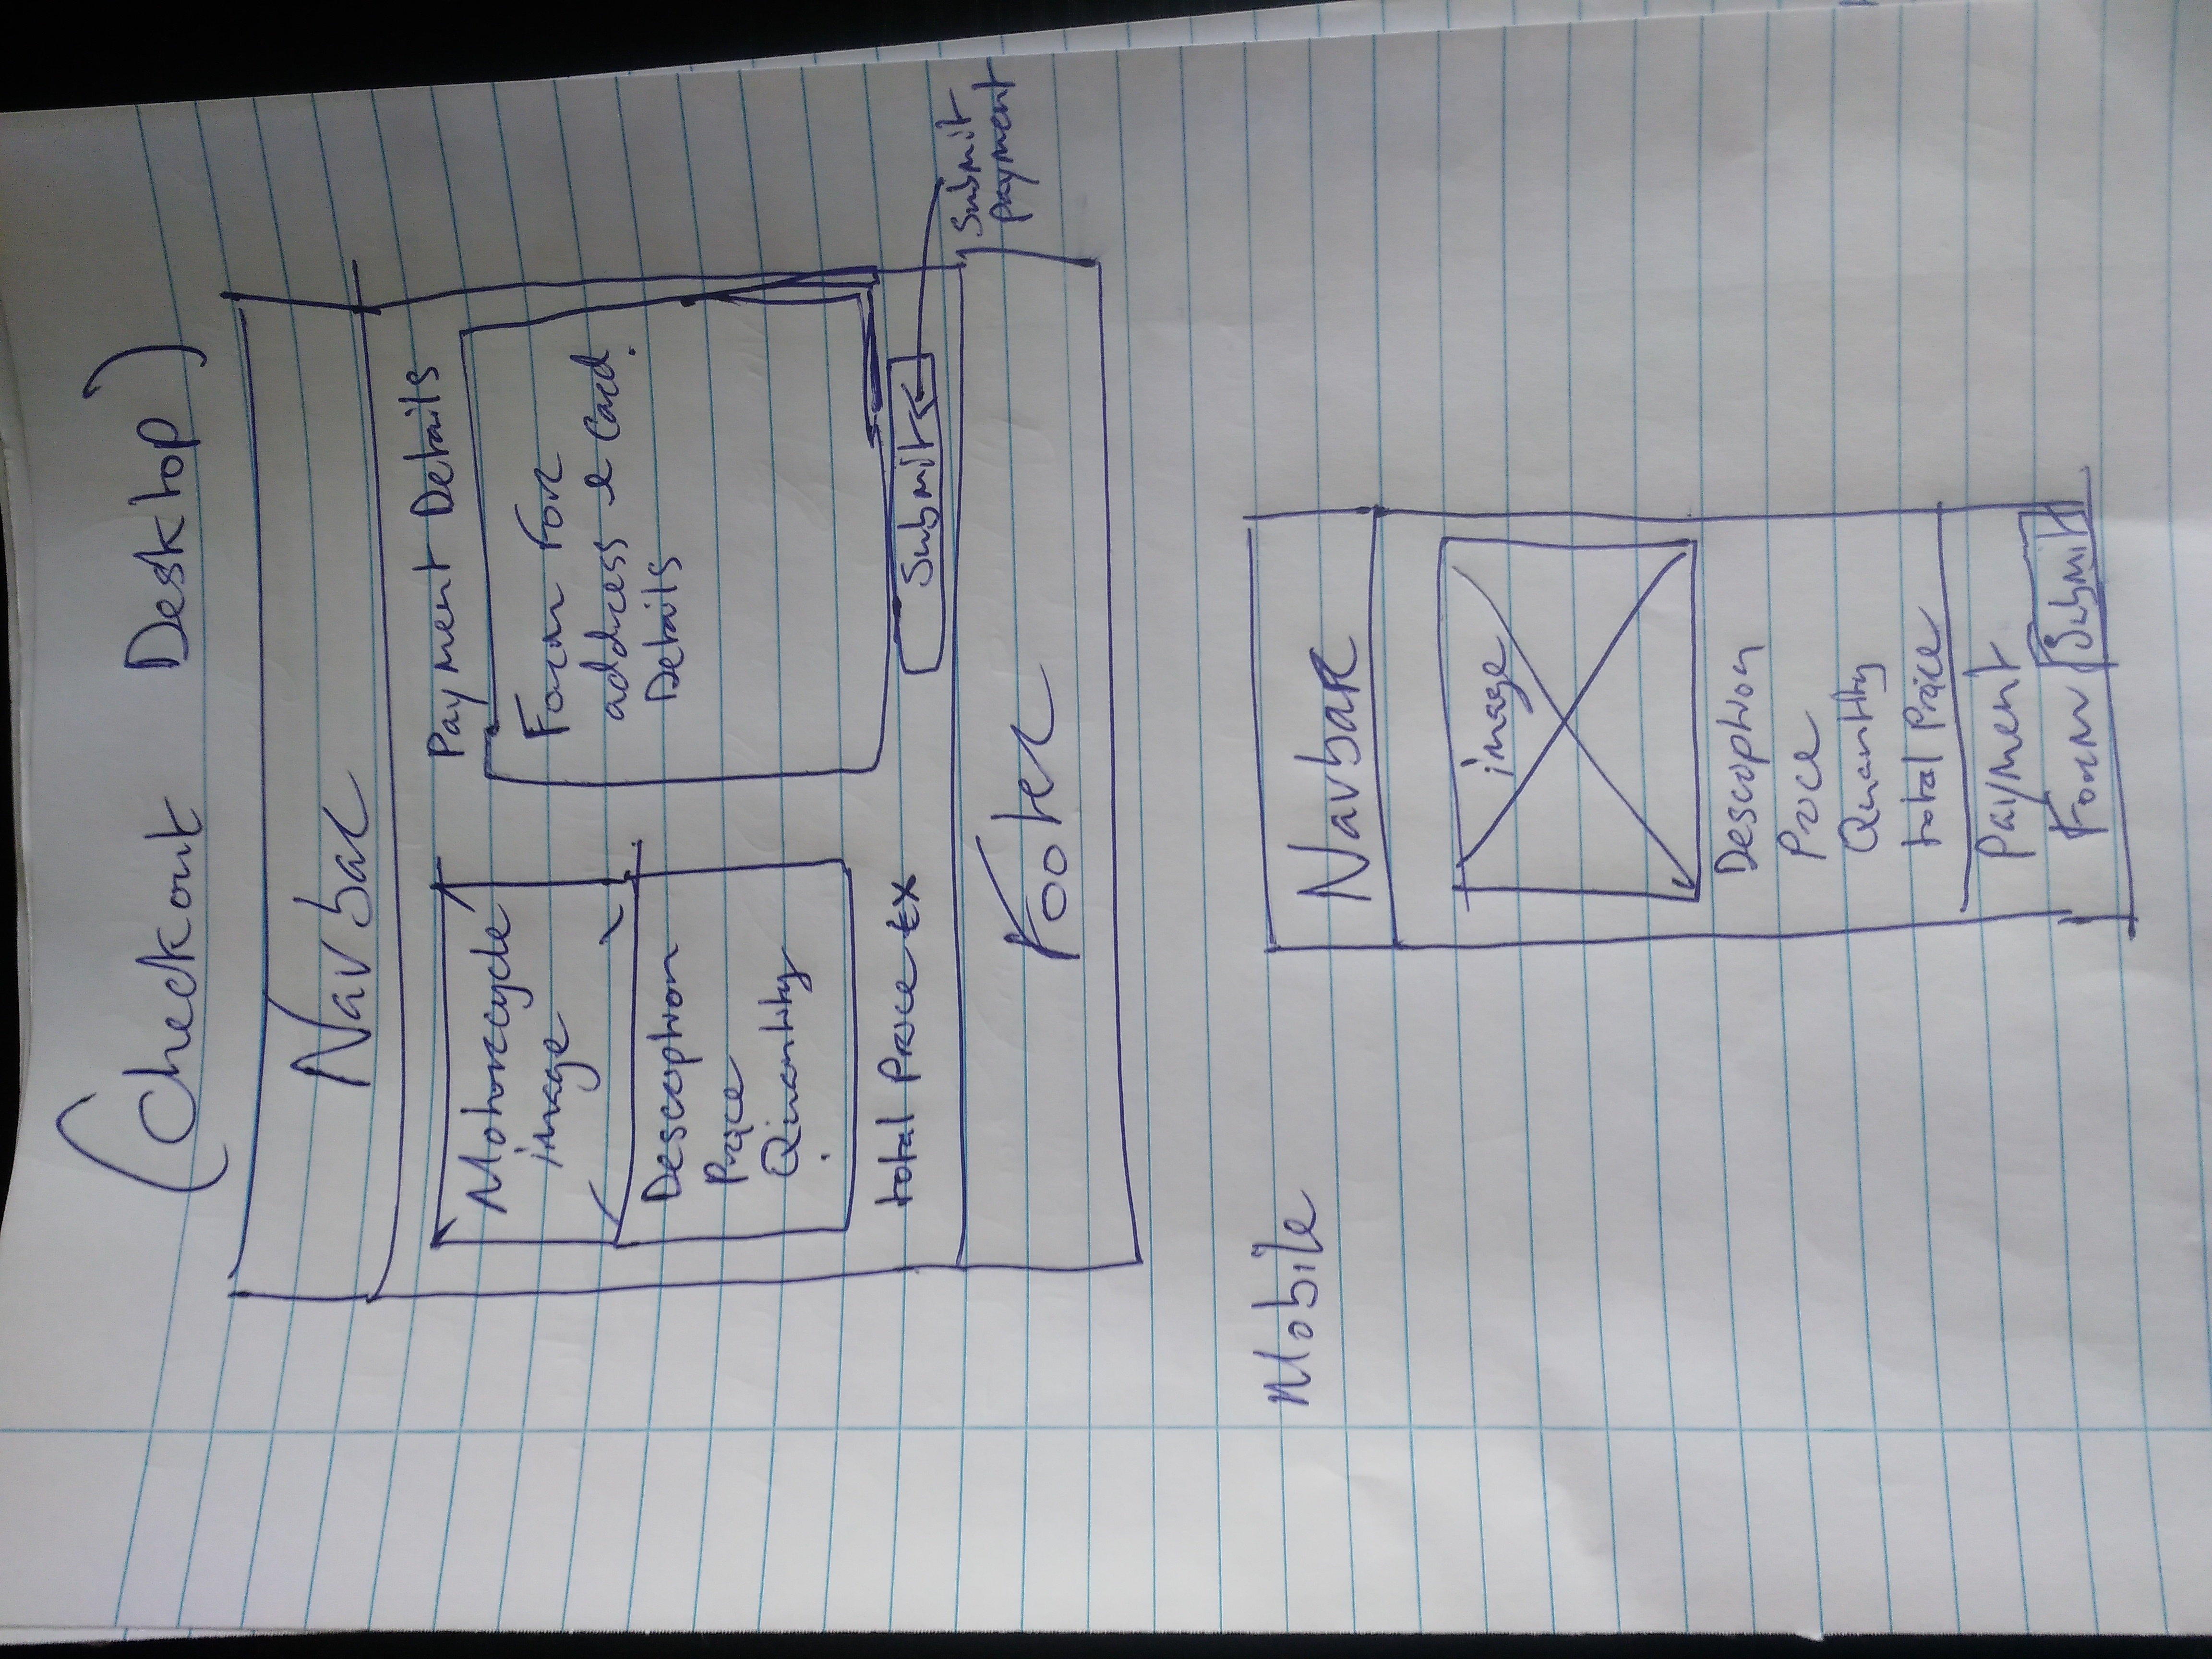 (Checkout Desktop)
Navbar
Motorcycle
image
Description
Price
Quantity
total Price
Payment Details
Form For
address & Card
Details
Submit
Submit
payment
Footer
Mobile
Navbar
image
Description
Price
Quantity
total Price
Payment
Form
Submit